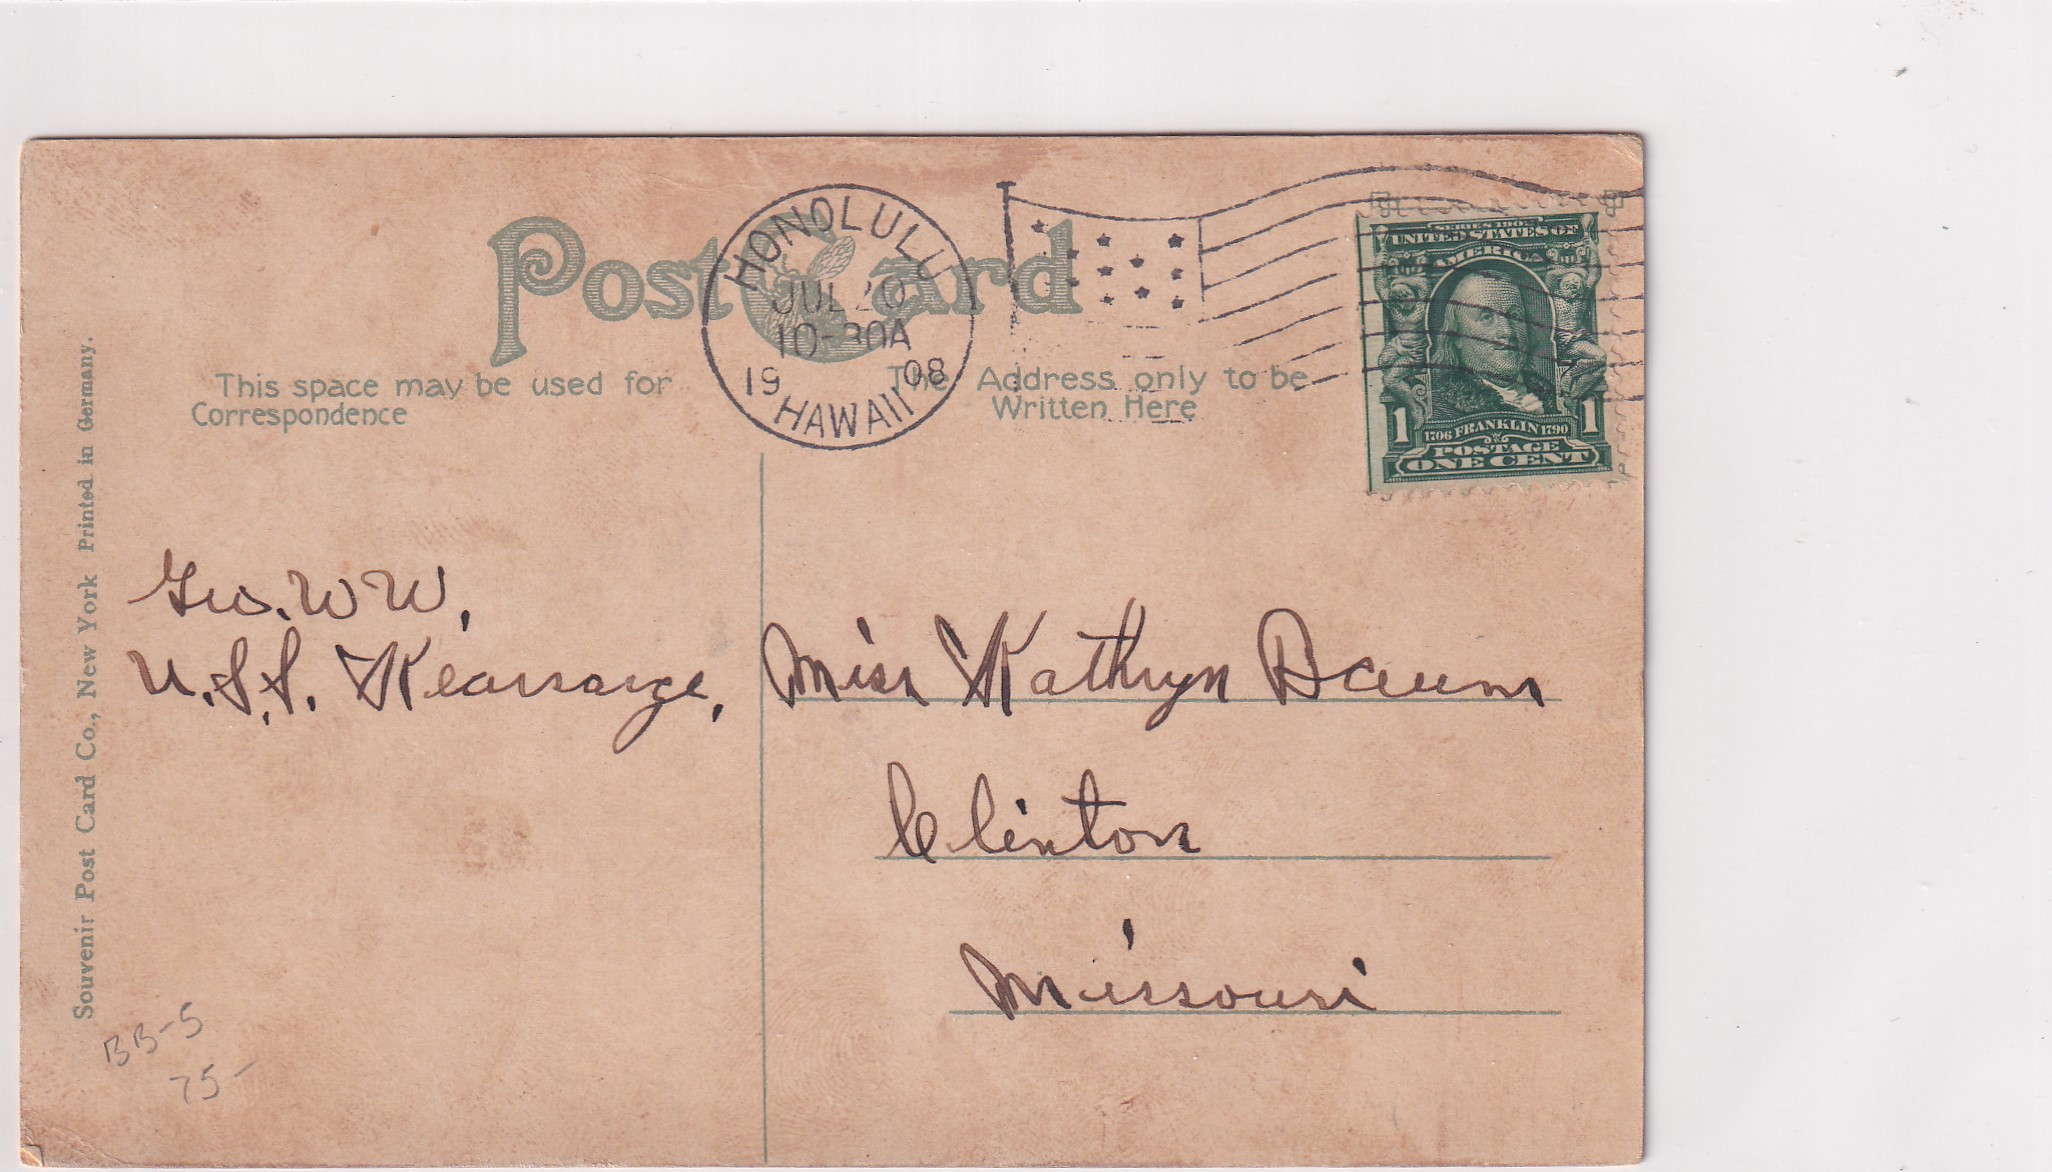 Post Card
HONOLULU
JUL 20
10-30A
19 08
HAWAII
SERIES 1902
UNITED STATES OF
AMERICA
1 1
1706 FRANKLIN 1790
POSTAGE
ONE CENT
This space may be used for
Correspondence
The Address only to be
Written Here
Geo. W W.
U.S.S. Kearsarge,
Miss Kathryn Baum
Clinton
Missouri
Souvenir Post Card Co., New York Printed in Germany.
BB-5
75-